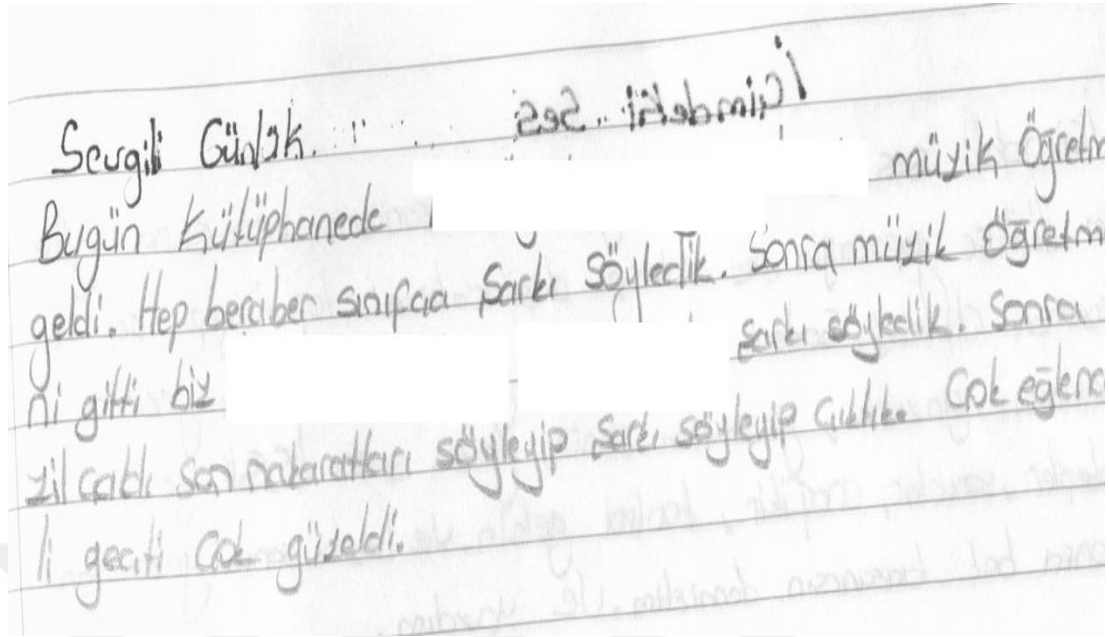 Sevgili Günlük.
İçimdeki Ses
Bugün Kütüphanede müzik Öğretm
geldi. Hep beraber sınıfca Şarkı Söyledik. Sonra müzik Öğretm
ni gitti biz şarkı söyledik. Sonra
zil çaldı son nakaratları söyleyip Şarkı söyleyip Çıktık. Çok eğlenc
li geçti Çok güzeldi.